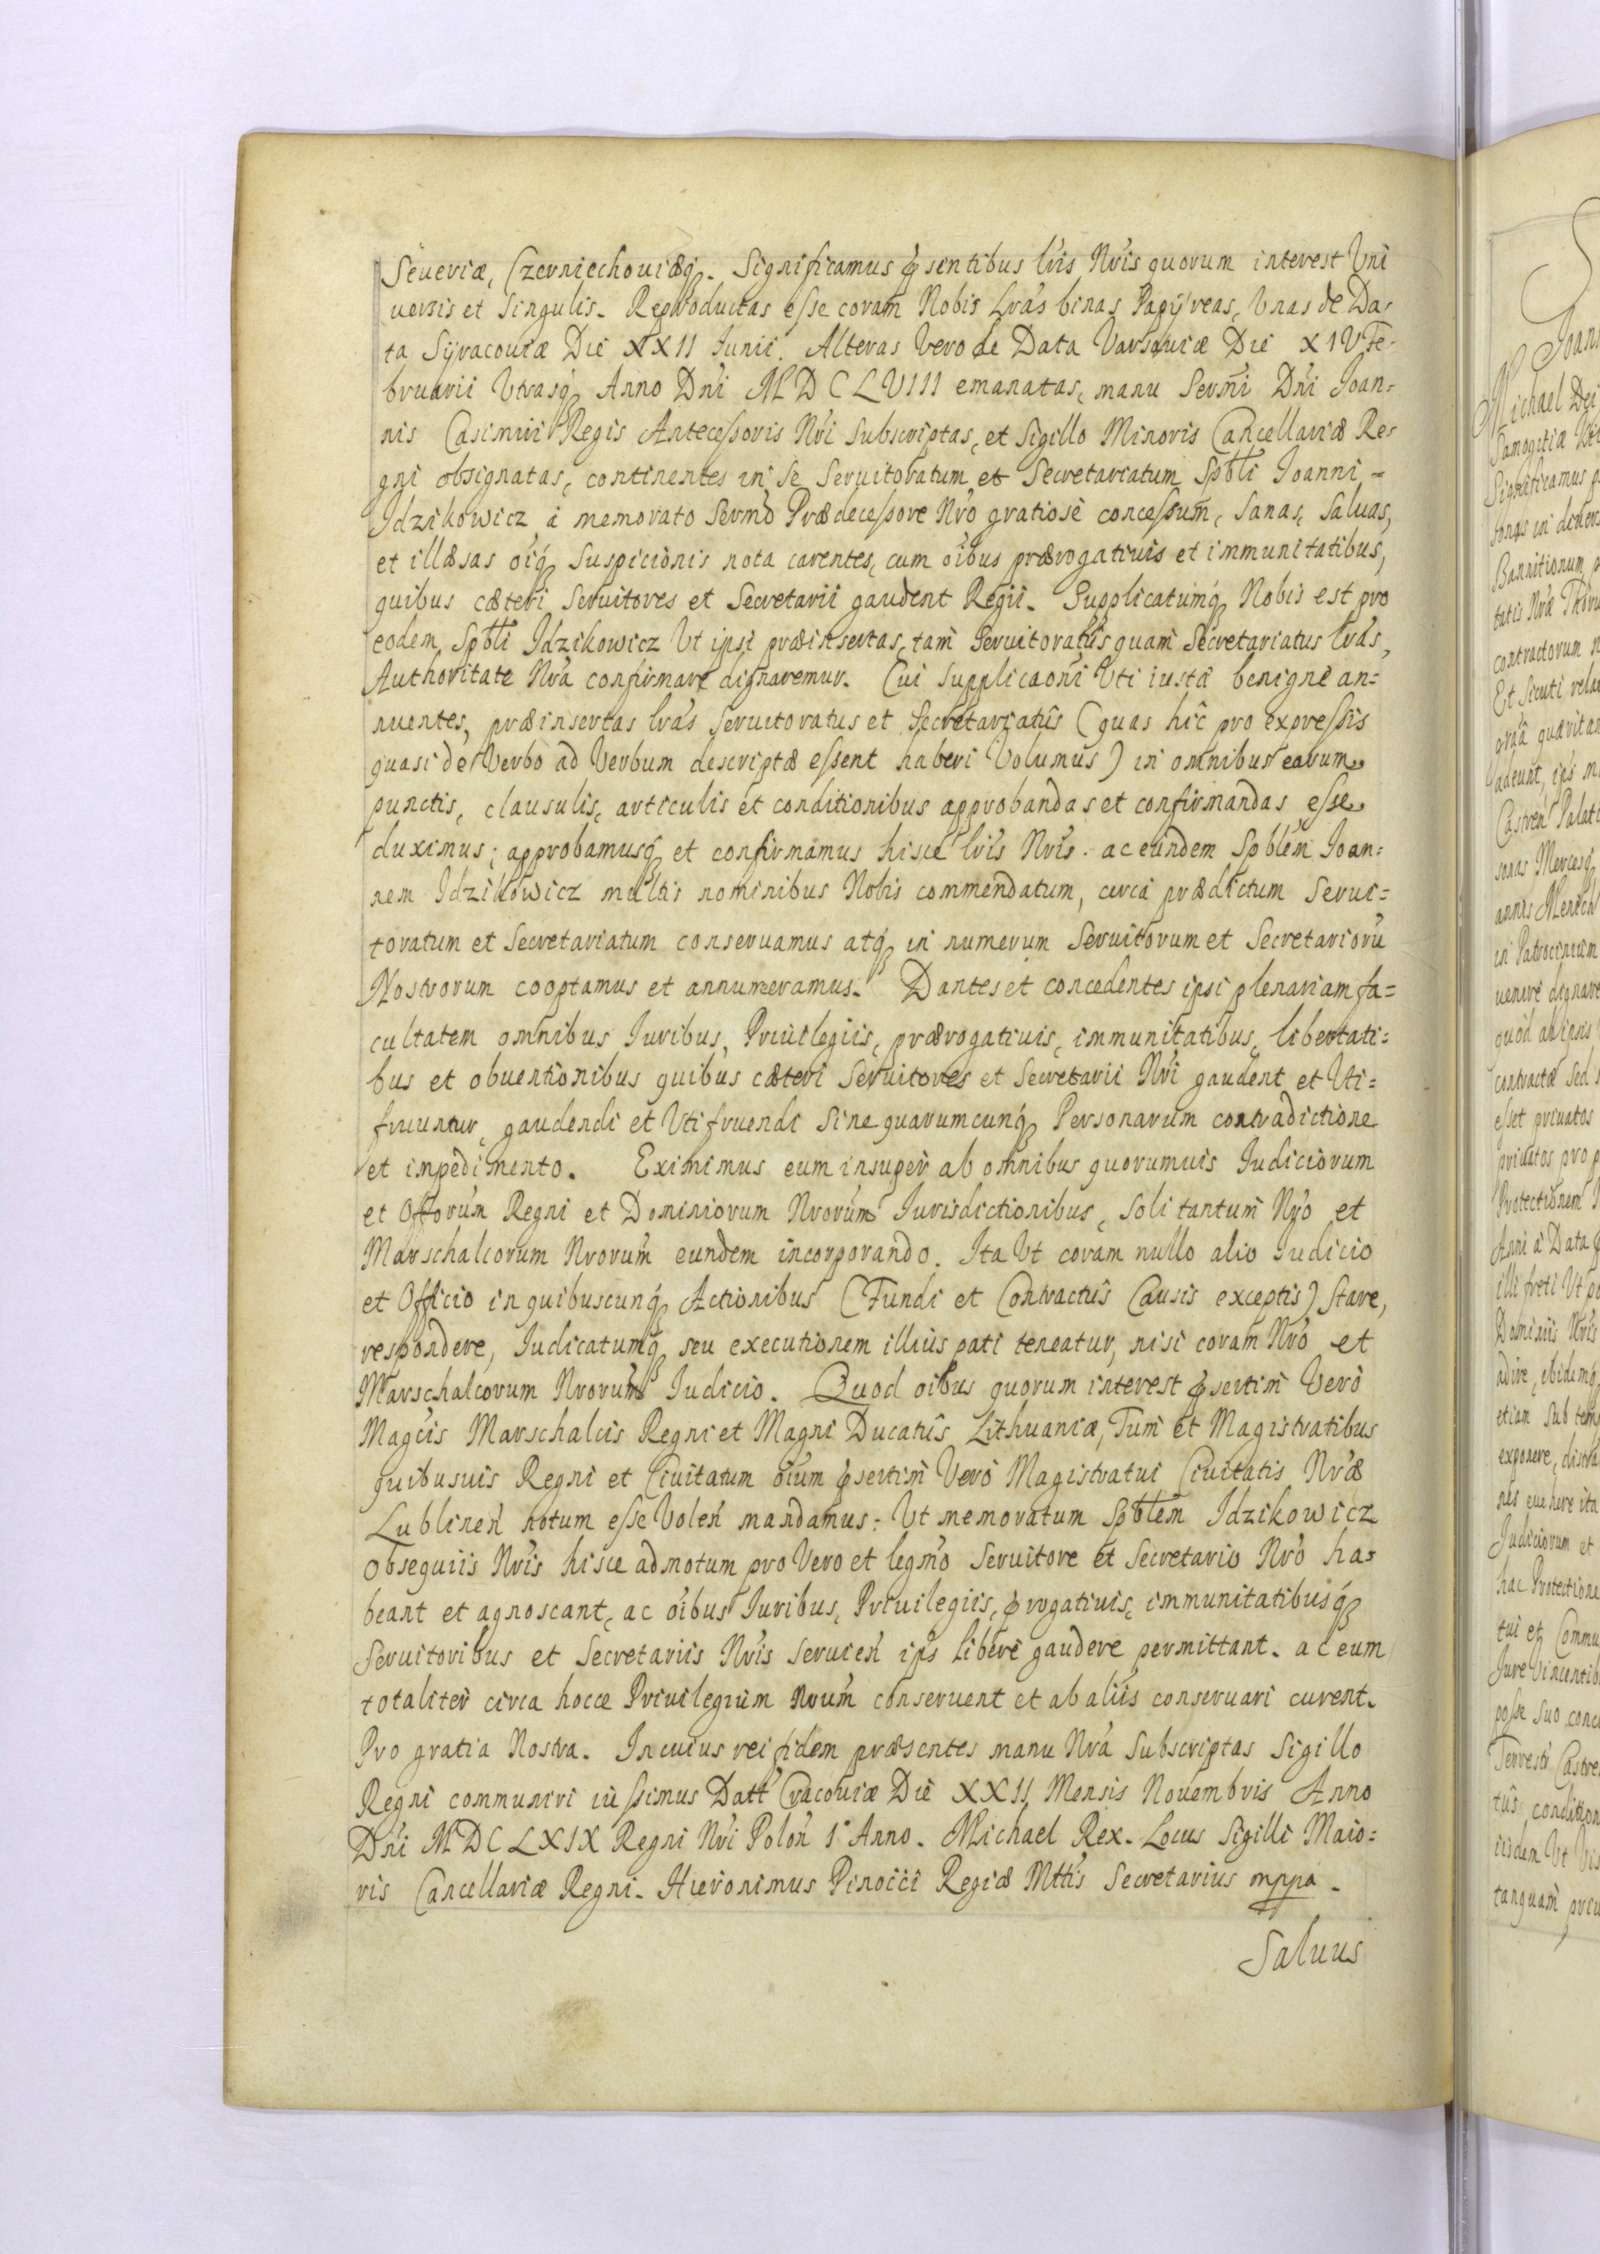 Seueriæ, Czerniechouiæq3. Significamus psentibus lris Nris quorum interest Vni
uersis et Singulis. Reproductas esse coram Nobis Lras binas Papÿreas, Vnas de Da-
ta Sÿracouiæ Die XXII Iunii. Alteras Vero de Data Varsauiæ Die XIV Fe-
bruarii Vtrasq3 Anno Dni MDCLVIII emanatas, manu Sermi Dni Joan-
nis Casimiri Regis Antecessoris Nri Subscriptas, et Sigillo Minoris Cancellariæ Re-
gni obsignatas, continentes in se Seruitoratum et Secretariatum Spbli Joanni-
Idzikowicz a memorato Sermo Prædecessore Nro gratiose concessum, Sanas, Saluas,
et illæsas oiq3 Suspicionis nota carentes, cum oibus prærogatiuis et immunitatibus,
quibus cæteri Seruitores et Secretarii gaudent Regii. Supplicatumq3 Nobis est pro
eodem Spbli Idzikowicz Vt ipsi præinsertas, tam Seruitoratus quam Secretariatus lras,
Authoritate Nra confirmare dignaremur. Cui Supplicaoni Vti iustæ benigne an=
nuentes, præinsertas lras Seruitoratus et Secretariatus (quas hic pro expressis
quasi de Verbo ad Verbum descriptæ essent haberi Volumus) in omnibus earum
punctis, clausulis, articulis et conditionibus approbandas et confirmandas esse
duximus; approbamusq3 et confirmamus hisce lris Nris. ac eundem Spblem Joan=
nem Idzikowicz multis nominibus Nobis commendatum, circa prædictum Serui=
toratum et Secretariatum conseruamus atq3 in numerum Seruitorum et Secretarioru
Nostrorum cooptamus et annumeramus. Dantes et concedentes ipsi plenariam fa=
cultatem omnibus Iuribus, Priuilegiis, prærogatiuis, immunitatibus, libertati=
bus et obuentionibus quibus cæteri Seruitores et Secretarii Nri gaudent et Vti=
fruuntur, gaudendi et Vtifruendi Sine quarumcunq3 Personarum contradictione
et impedimento. Eximimus eum insuper ab omnibus quorumuis Iudiciorum
et Offorum Regni et Dominiorum Nrorum Iurisdictionibus, Soli tantum Nro et
Marschalcorum Nrorum eundem incorporando. Ita Vt coram nullo alio Iudicio
et Officio in quibuscunq3 Actionibus (Fundi et Contractus Causis exceptis) Stare,
respondere, Iudicatumq3 seu executionem illius pati teneatur, nisi coram Nro et
Marschalcorum Nrorum Judicio. Quod oibus quorum interest psertim Vero
Magcis Marschalcis Regni et Magni Ducatus Lithuaniæ, Tum et Magistratibus
quibusuis Regni et Ciuitatum oium psertim Vero Magistratui Ciuitatis Nræ
Lublinen notum esse Volen mandamus: Vt memoratum Spblem Idzikowicz
Obsequiis Nris hisce admotum pro Vero et legmo Seruitore et Secretario Nro ha-
beant et agnoscant, ac oibus Iuribus, Priuilegiis, progatiuis, immunitatibusq3
Seruitoribus et Secretariis Nris Seruien ips libere gaudere permittant. ac eum
totaliter circa hocce Priuilegium Nrum conseruent et ab aliis conseruari curent.
Pro gratia Nostra. In cuius rei fidem præsentes manu Nra Subscriptas Sigillo
Regni communiri iussimus Datt Cracouiæ Die XXII Mensis Nouembris Anno
Dni MDCLXIX Regni Nri Polon 1° Anno. Michael Rex. Locus Sigilli Maio=
ris Cancellariæ Regni. Hieronimus Pinocci Regiæ Mttis Secretarius mppa.
Saluus
Michael Dei
Samogitiæ
Significamus
Bannitionum
contractorum
Et Sicuti
in Patrocinium
quod ab ipsis
contractæ Sed
esset priuatos
priuatos pro
Protectionem
Anni a Data
illi freti Vt
Dominiis Nris
etiam Sub
exponere,
Judiciorum et
hac Protectione
tui et Commu
posse Suo
tus, condition
iisdem Vt
tanquam